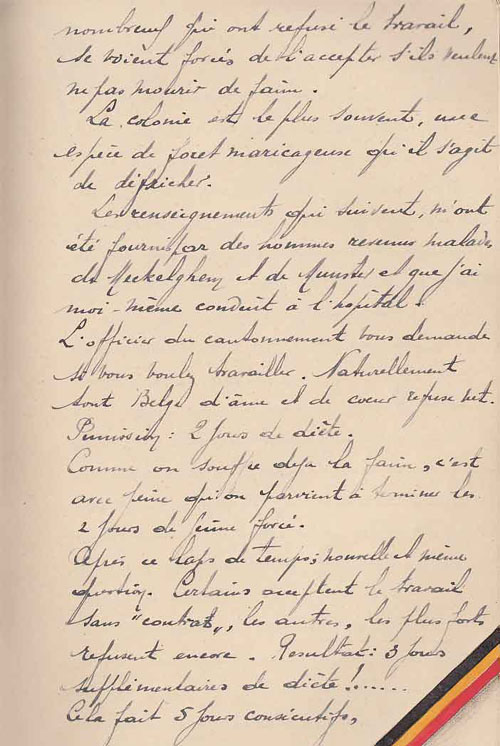 nombreux qui ont refusé le travail,
se voient forcés de l'accepter s'ils veulent
ne pas mourir de faim.
La colonie est le plus souvent, une
espèce de foret marécageuse qu'il s'agit
de défricher.
Les renseignements qui suivent, m'ont
été fournis par des hommes revenus malades
de et de Munster et que j'ai
moi-même conduit à l'hôpital.
L'officier du cantonnement vous demande
si vous voulez travailler. Naturellement
tout Belge d'âme et de coeur refuse net.
Punission: 2 jours de diète.
Comme on souffre deja la faim, c'est
avec peine qu'on parvient à terminer les
2 jours de jeûne forcé.
Après ce laps de temps; nouvelle et même
question. Certains acceptent le travail
sans "contrat", les autres, les plus forts
refusent encore. Resultat: 3 jours
supplémentaires de diète!......
Cela fait 5 jours consécutifs,